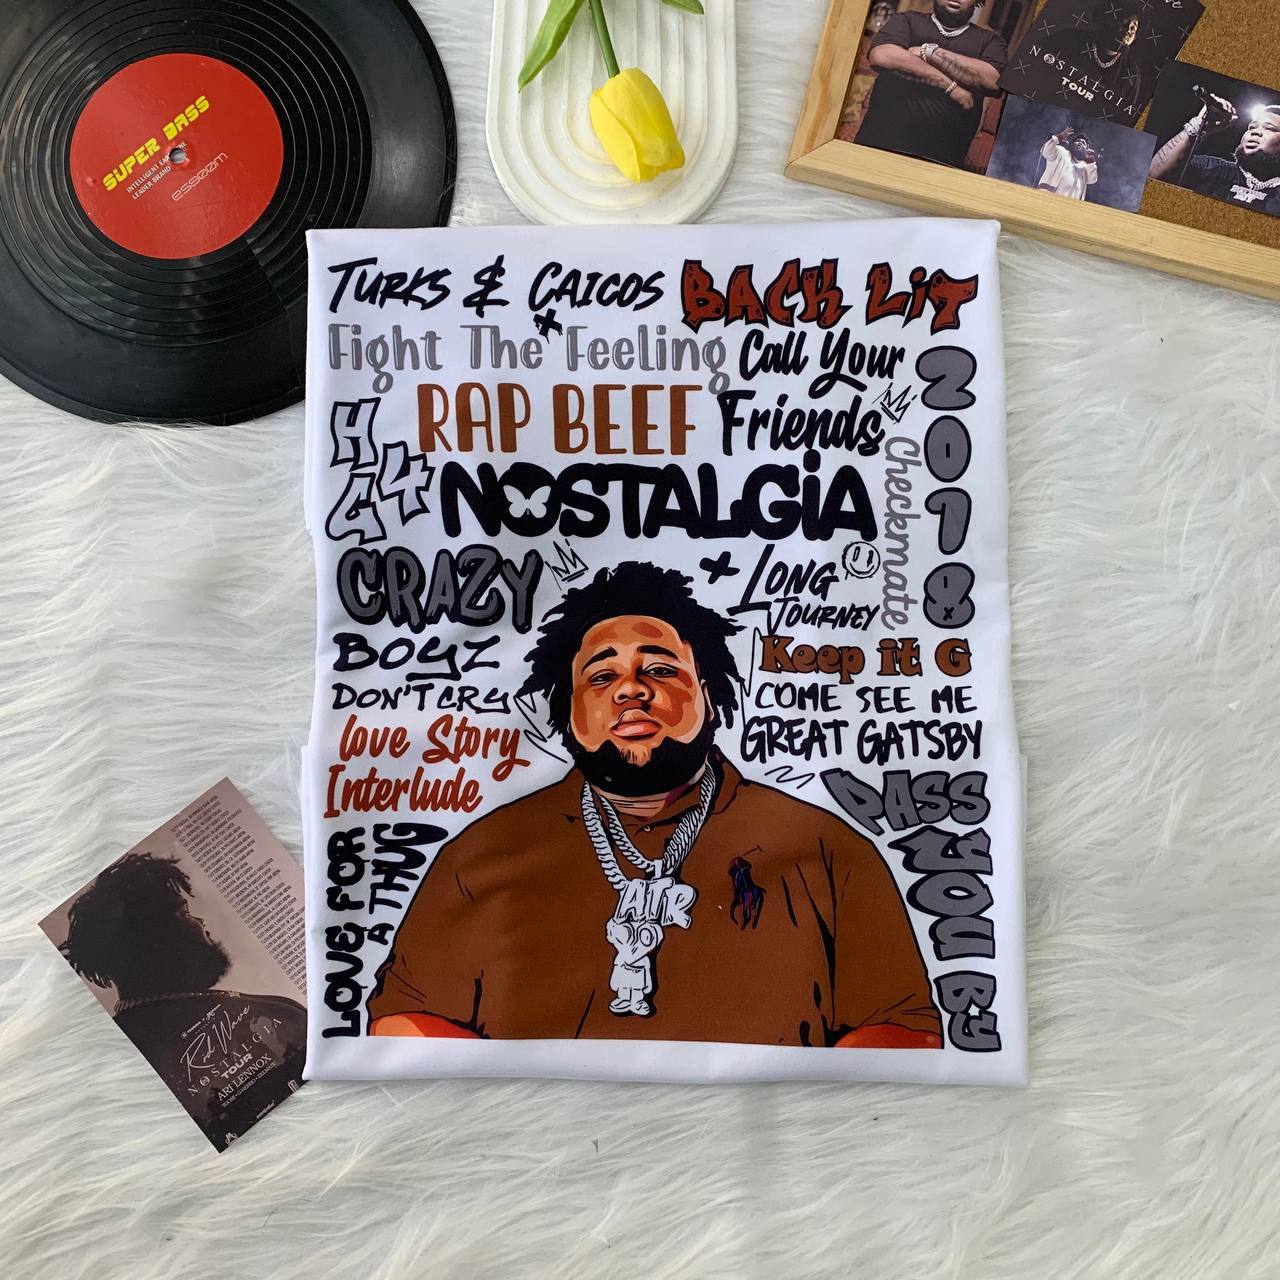 SUPER BASS
INTELLIGENT EAR
LEADER BRAND
essoom
NOSTALGIA
TOUR
TURKS & CAICOS
BACK LIT
Fight The Feeling
Call Your
Friends
2018
RAP BEEF
HG4
NOSTALGIA
Checkmate
CRAZY
LONG
JOURNEY
BOYZ
DON'T CRY
Keep it G
COME SEE ME
GREAT GATSBY
Love Story
Interlude
PASS
YOU BY
LOVE FOR
A THUG
ATR
Rod Wave
NOSTALGIA
TOUR
ARI LENNOX